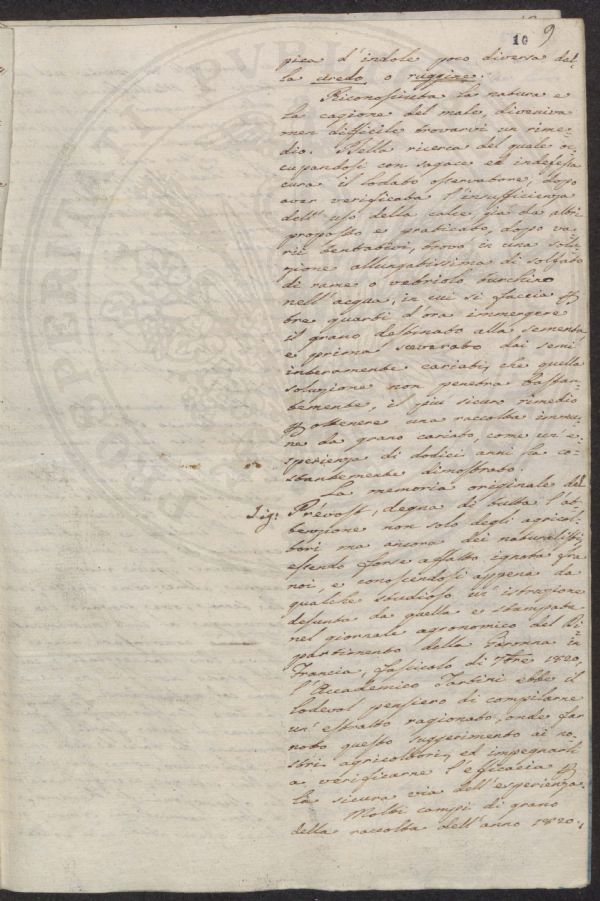 10 9
pica d'indole poco diversa del-
la uredo o ruggine.
Riconosciuta la natura e
la cagione del male, diveniva
men difficile trovarvi un rime-
dio. Nella ricerca del quale oc-
cupandosi con sagace ed indefessa
cura il lodato osservatore, dopo
aver verificata l'insufficienza
dell'uso della calce, già da altri
proposto e praticato, dopo va-
rii tentativi, trovò in una solu-
zione allungatissima di solfato
di rame o vetriolo turchino
nell'acqua, in cui si faccia p
tre quarti d'ora immergere
il grano destinato alla sementa
e prima sceverato dai semi
interamente cariati, che quella
soluzione non penetra bastan-
temente, il più sicuro rimedio
p ottenere una raccolta immu-
ne da grano cariato, come un'e-
sperienza di dodici anni ha co-
stantemente dimostrato.
La memoria originale del
Sig: Prévost, degna di tutta l'at-
tenzione non solo degli agricol-
tori ma ancora dei naturalisti,
essendo forse affatto ignota fra
noi, e conoscendosi appena da
qualche studioso un'istruzione
desunta da quella e stampata
nel giornale agronomico del Di-
partimento della Garonna in
Francia, fascicolo di 7bre 1820,
l'Accademico Tartini ebbe il
lodevol pensiero di compilarne
un'estratto ragionato, onde far
noto questo suggerimento ai no-
stri agricoltori, ed impegnarli
a verificarne l'efficacia p
la sicura via dell'esperienza.
Molti campi di grano
della raccolta dell'anno 1820.,
PROSPERITATI PVBLICAE